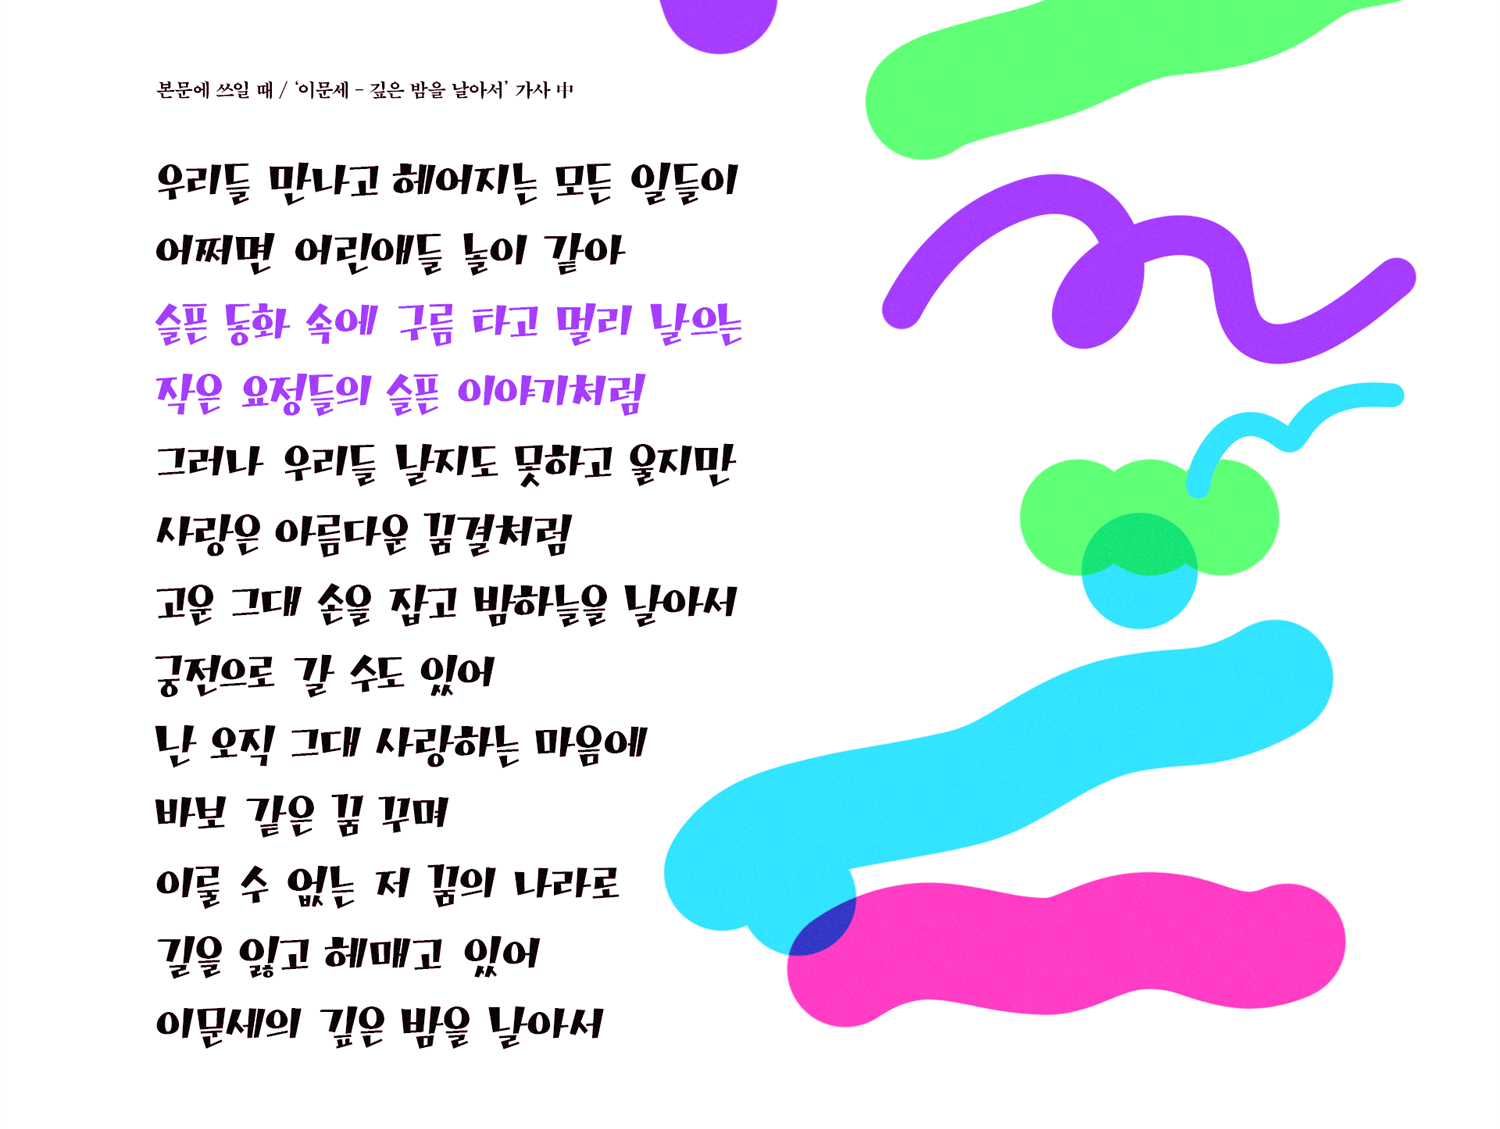 본문에 쓰일 때 / ‘이문세 - 깊은 밤을 날아서’ 가사 中
우리들 만나고 헤어지는 모든 일들이
어쩌면 어린애들 놀이 같아
슬픈 동화 속에 구름 타고 멀리 날으는
작은 요정들의 슬픈 이야기처럼
그러나 우리들 날지도 못하고 울지만
사랑은 아름다운 꿈결처럼
고운 그대 손을 잡고 밤하늘을 날아서
궁전으로 갈 수도 있어
난 오직 그대 사랑하는 마음에
바보 같은 꿈 꾸며
이룰 수 없는 저 꿈의 나라로
길을 잃고 헤매고 있어
이문세의 깊은 밤을 날아서